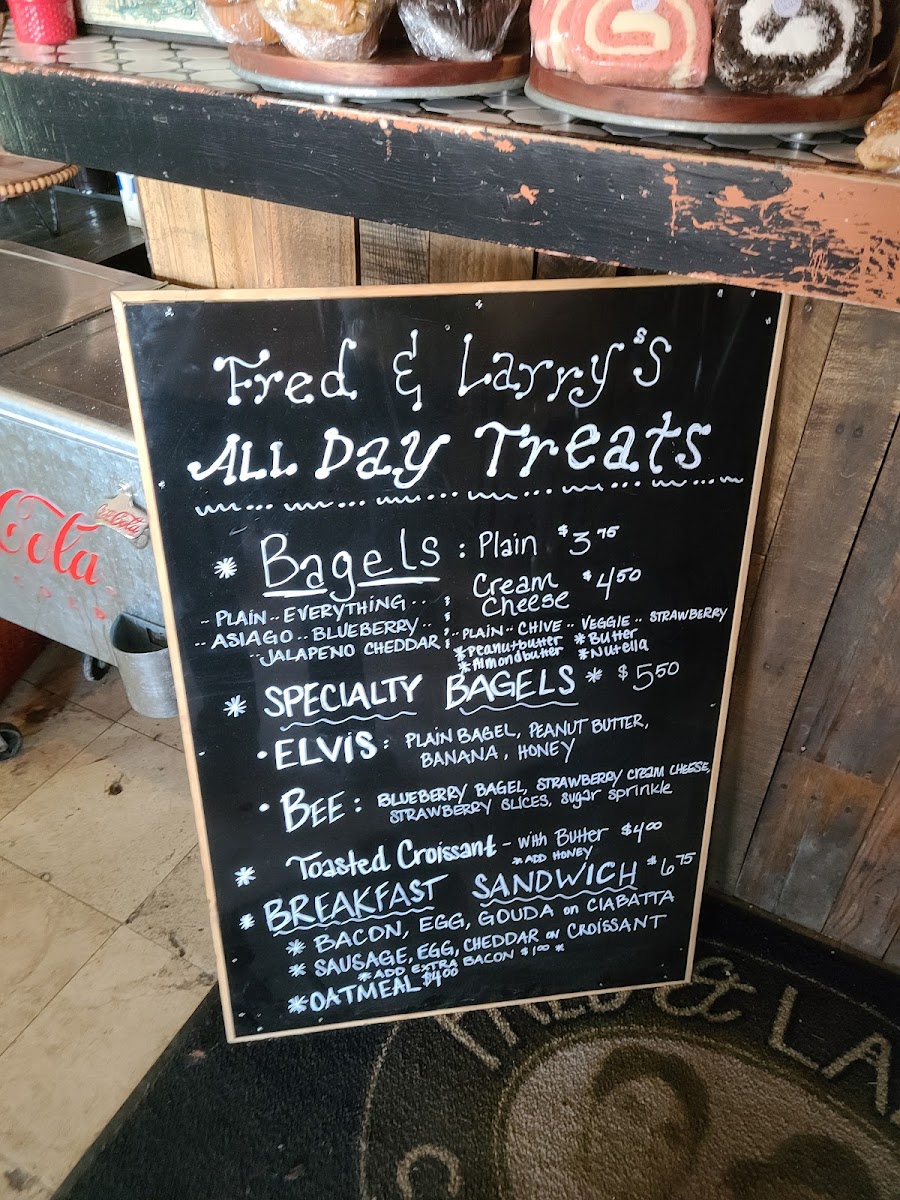 Fred & Larry's
ALL Day Treats
* Bagels : Plain $3 75
Cream Cheese $4 50
-- PLAIN -- EVERYTHING --
-- ASIAGO -- BLUEBERRY --
-- JALAPENO CHEDDAR
-- PLAIN -- CHIVE -- VEGGIE -- STRAWBERRY
* Peanutbutter * Butter
* Almondbutter * Nutella
* SPECIALTY BAGELS * $5 50
• ELVIS: PLAIN BAGEL, PEANUT BUTTER,
BANANA, HONEY
• BEE: BLUEBERRY BAGEL, STRAWBERRY CREAM CHEESE,
STRAWBERRY SLICES, sugar sprinkle
* Toasted Croissant - with Butter $4 00
* ADD HONEY
* BREAKFAST SANDWICH $6 75
* BACON, EGG, GOUDA on CIABATTA
* SAUSAGE, EGG, CHEDDAR on CROISSANT
* ADD EXTRA BACON $1 00 *
* OATMEAL $4 00
Cola
Coca-Cola
FRED & LA